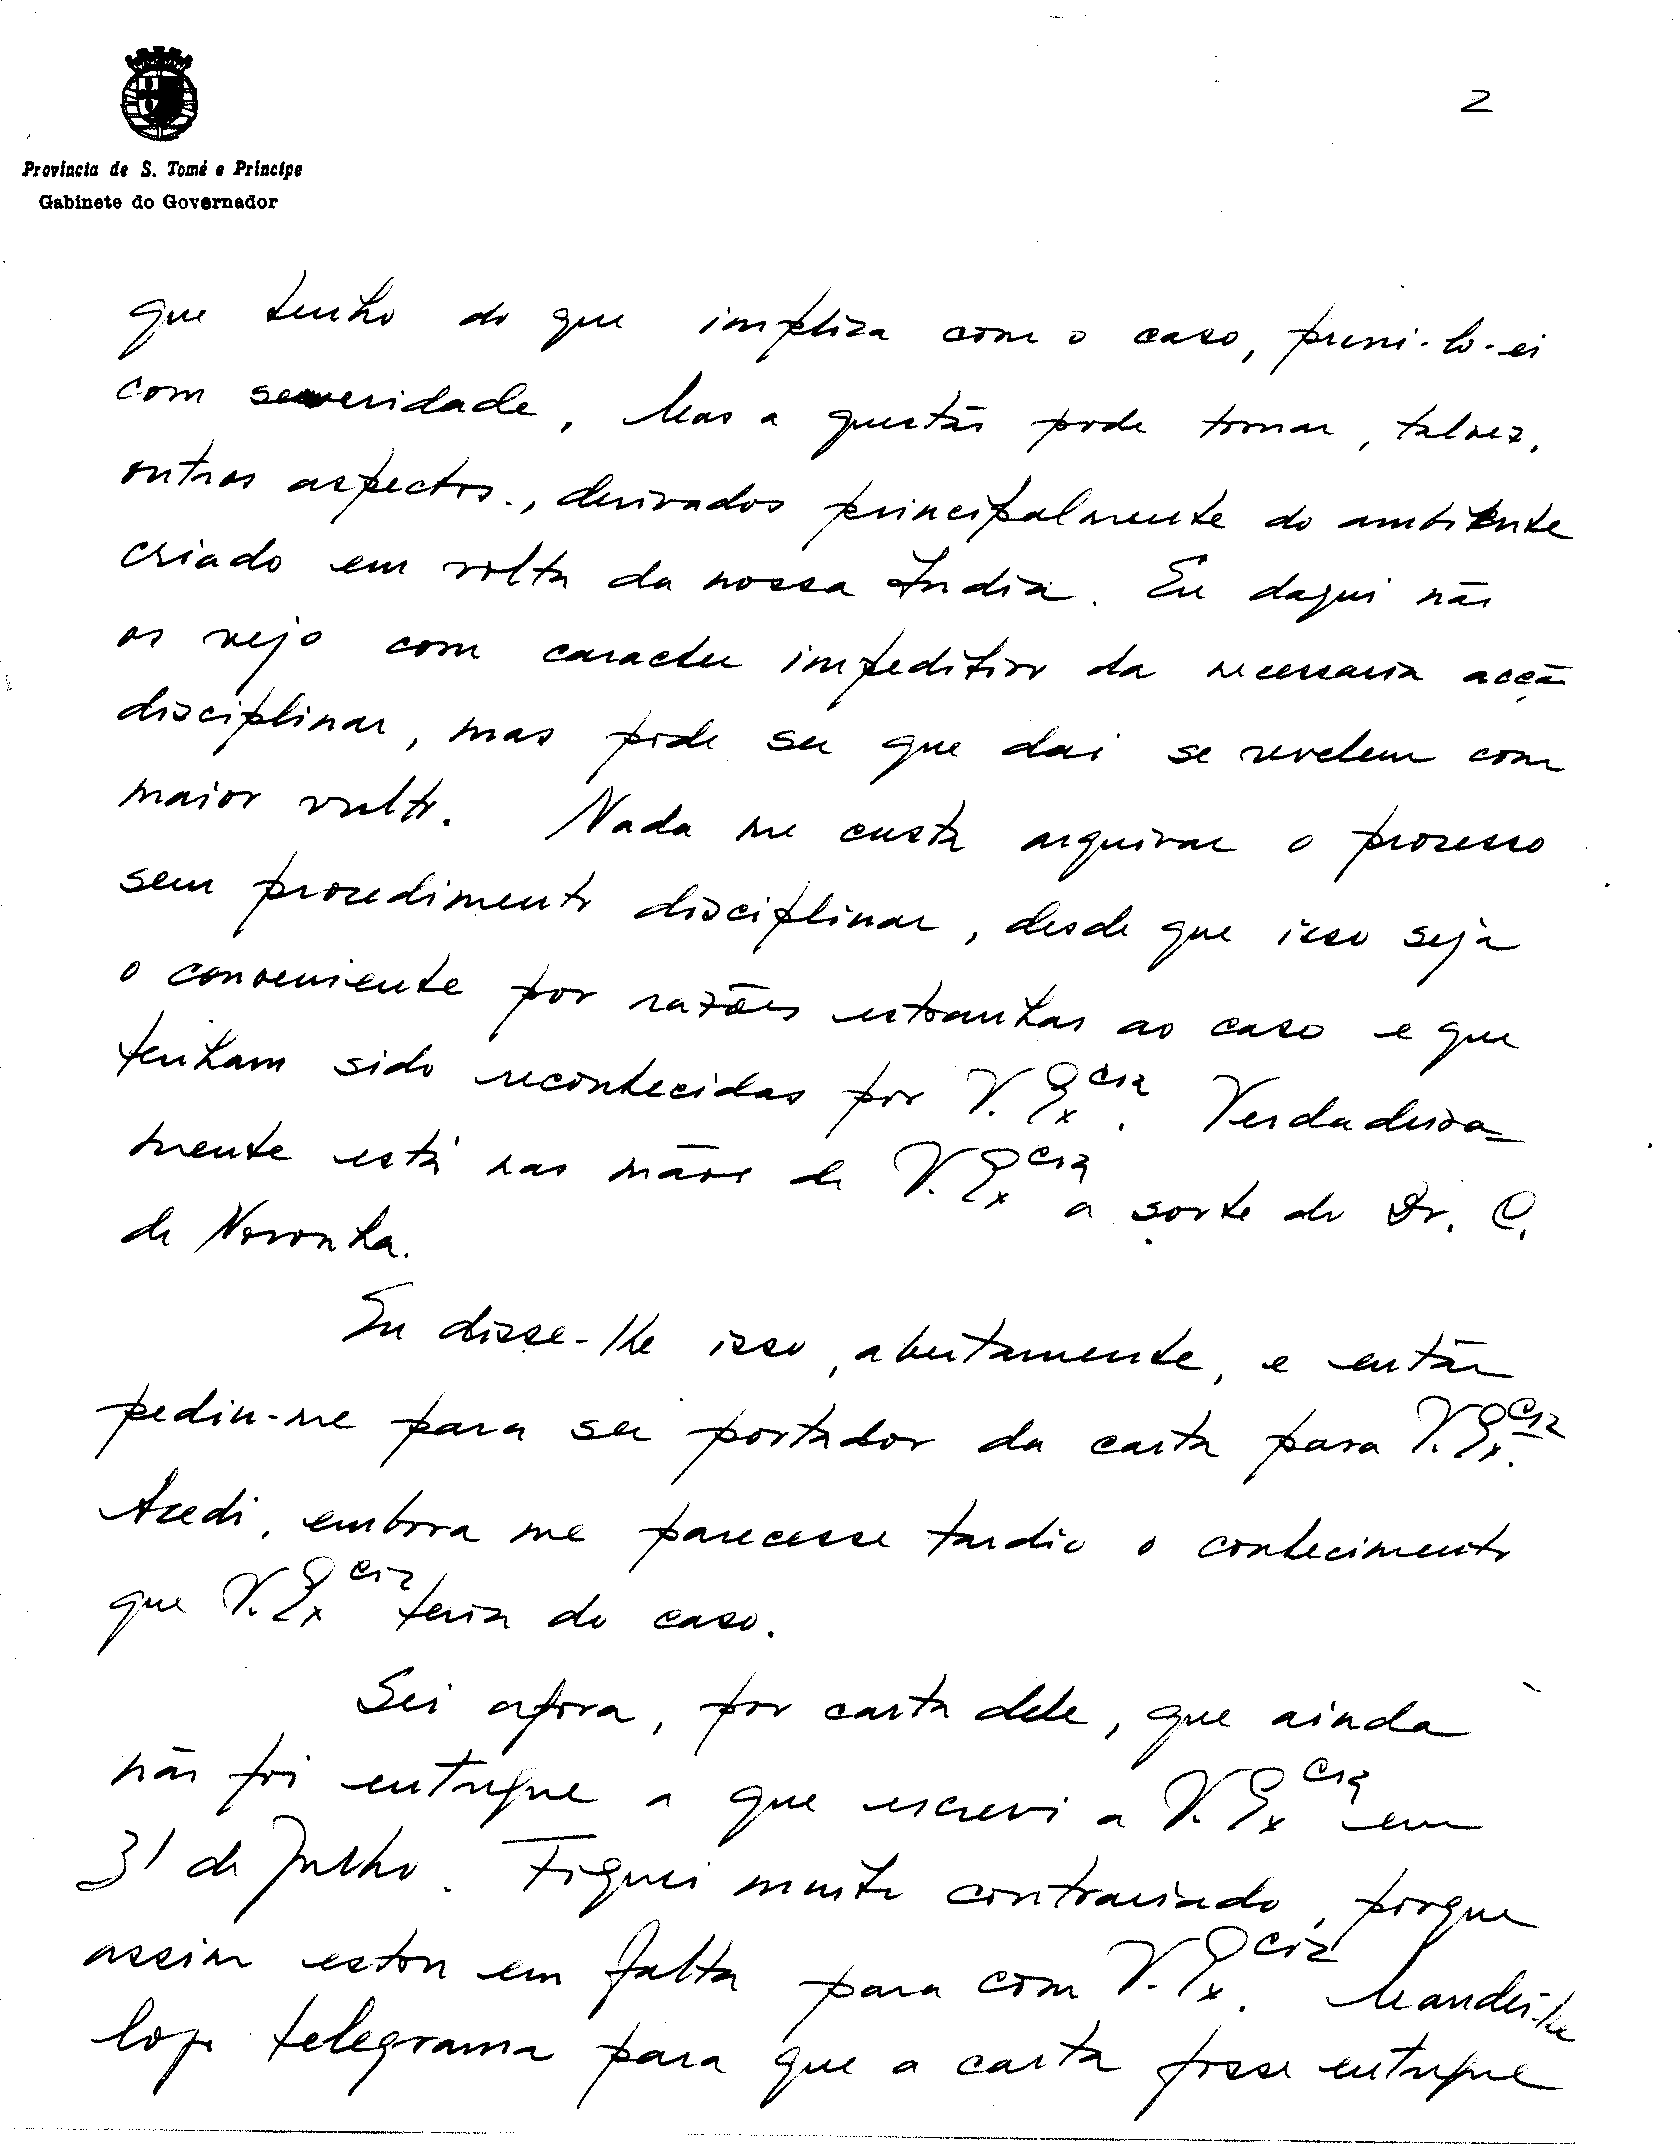 2
Província de S. Tomé e Príncipe
Gabinete do Governador
que tenho do que impliza com o caso, puni-lo-ei
com severidade. Mas a questão pode tomar, talvez,
outros aspectos, derivados principalmente do ambiente
criado em volta da nossa India. Eu daqui não
os vejo com caracter impeditivo da necessaria acção
disciplinar, mas pode ser que dai se revelem com
maior vulto. Nada me custa arquivar o processo
sem procedimento disciplinar, desde que isso seja
o conveniente por razões estranhas ao caso e que
tenham sido reconhecidas por V. Excia. Verdadeira=
mente está nas mãos de V. Excia a sorte do Dr. C.
de Noronha.
Eu disse-lhe isso, abertamente, e então
pediu-me para ser portador da carta para V. Excia.
Acedi, embora me parecesse tardio o conhecimento
que V. Excia teria do caso.
Sei agora, por carta dele, que ainda
não foi entregue a que escrevi a V. Excia em
31 de Julho. Fiquei muito contrariado, porque
assim estou em falta para com V. Excia. Mandei-lhe
logo telegrama para que a carta fosse entregue